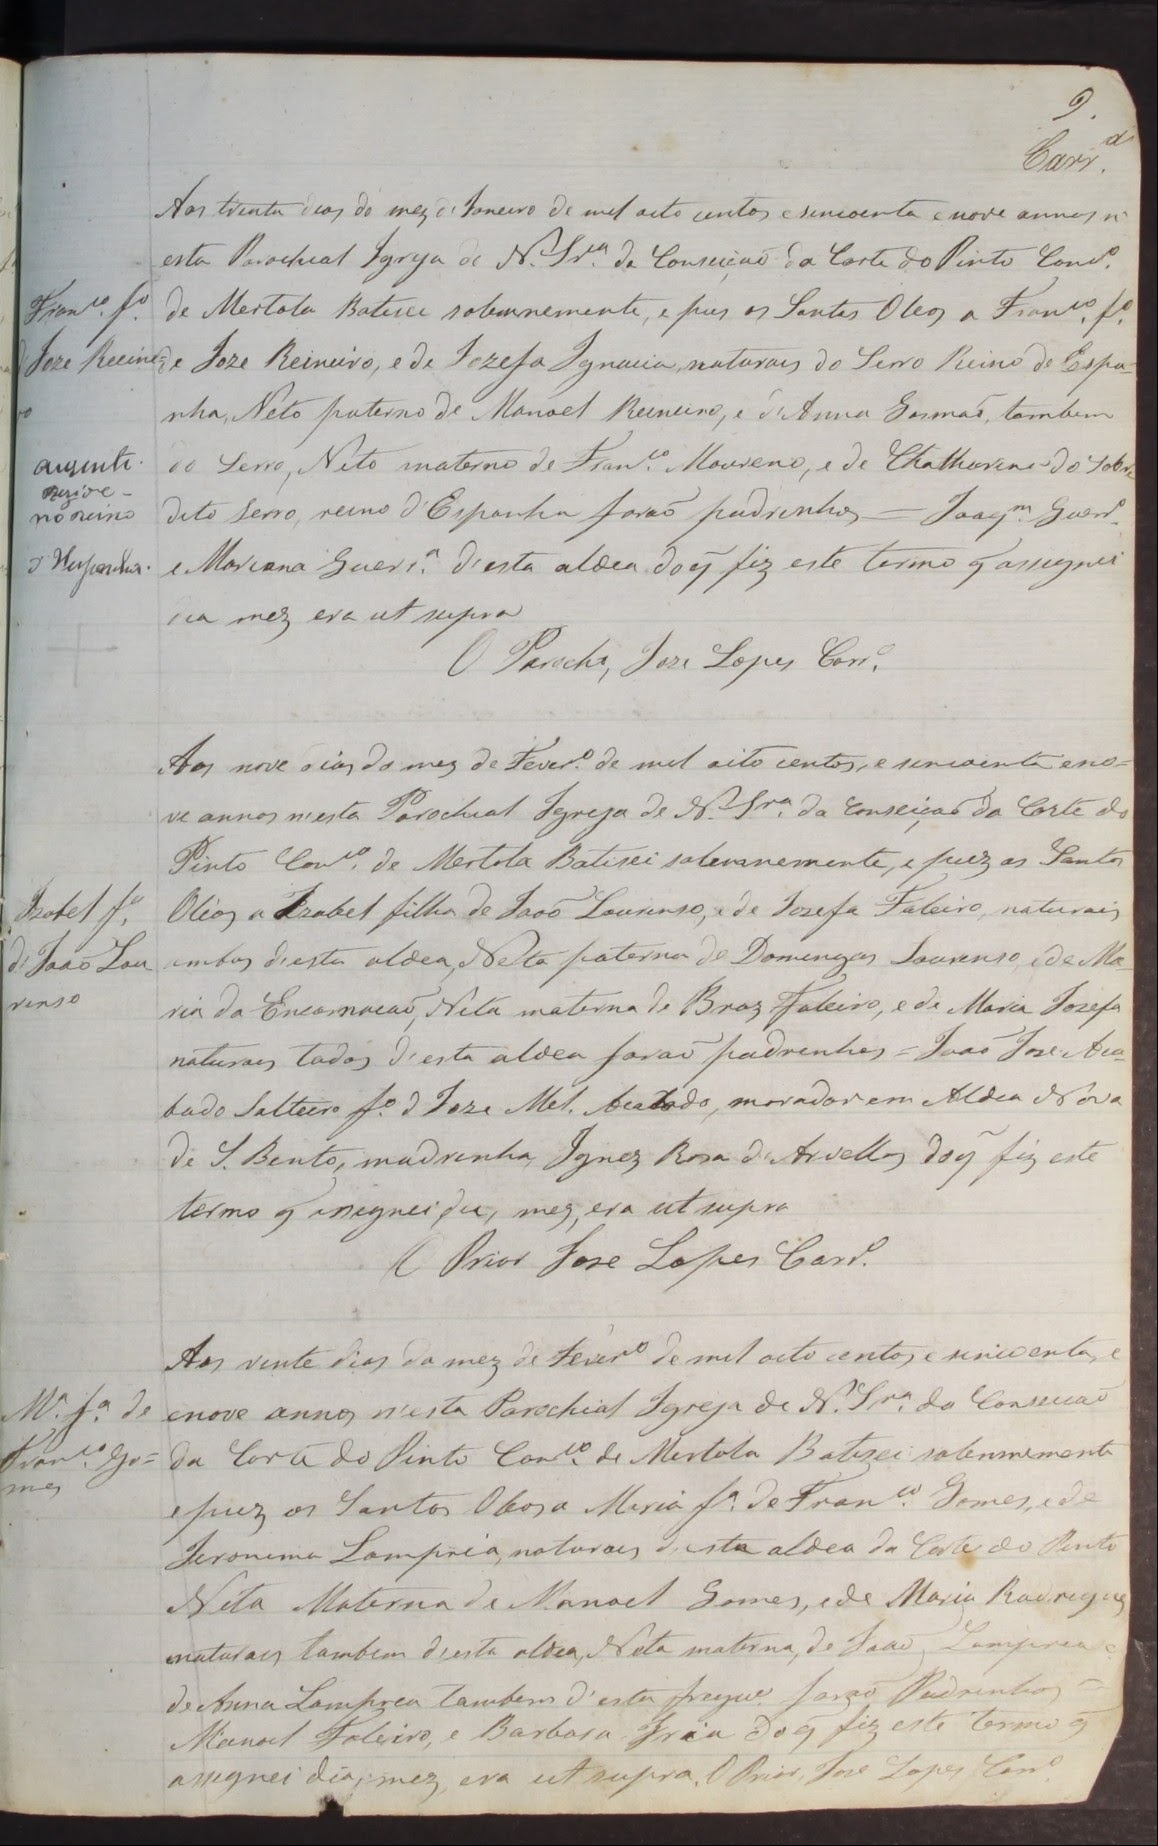 9.
Carr.º
Aos trinta dias do mez de Janeiro de mil oito centos e sincoenta e nove annos n'
esta Parochial Igreja de N. Sr.ª da Conseição da Corte do Pinto Conc.º
Fran.co f.º
de Mertola Batizei solemnemente, e pus os Santos Oleos a Fran.co f.º
de Joze Reeinei
de Joze Reineiro, e de Jozefa Ignacia, naturais do Serro Reino de Espa-
ro
nha, Neto paterno de Manoel Reineiro, e de Anna Gosmaõ, tambem
auzente
do Serro, Neto materno de Fran.co Moureno, e de Chatharina do Sobre
rezide -
no reino
dito Serro, reino d'Espanha foraõ padrinhos = Joaq.m Guerr.º
d'Hespanha.
e Mariana Guerr.ª d'esta aldea do q̃ fiz este termo q̃ assignei
dia mez era ut supra
O Parocho, Joze Lopes Carr.º
Aos nove dias do mez de Fever.º de mil oito centos, e sincoenta e no=
ve annos n'esta Parochial Igreja de N. Sr.ª da Conseiçaõ da Corte do
Pinto Con.co de Mertola Batisei solemnemente, e puz os Santos
Izabel f.ª
Oleos a Izabel filha de Joaõ Lourenso, e de Jozefa Faleiro, naturais
de Joaõ Lou
ambos d'esta aldea, Neta paterna de Domingos Lourenso, e de Ma-
renso
ria da Encarnacaõ, Neta materna de Braz Faleiro, e de Maria Jozefa
naturais todos d'esta aldea foraõ padrinhos = Joaõ Joze Aca-
bado Salteiro f.º d Joze Mel. Acabado, morador em Aldea Nova
de S. Bento, madrinha, Ignez Roza d'Arvellos do q̃ fiz este
termo q̃ assignei dia, mez, era ut supra
O Prior Joze Lopes Carr.º
Aos vinte dias do mez de Fever.º de mil oito centos, e sincoenta, e
M.ª f.ª de
enove annos n'esta Parochial Igreja de N. Sr.ª da Conseicaõ
Fran.co Go=
da Corte do Pinto Conc.º de Mertola Batizei solemnemente
mes
e puz os Santos Oleos a Maria f.ª de Fran.co Gomes, e de
Jeronima Lampreia, naturais d'esta aldea da Corte do Pinto
Neta Materna de Manoel Gomes, e de Maria Rodrigues
naturais tambem d'esta aldea, Neta materna, de Joaõ Lamprea e
de Anna Lamprea tambem d'esta fregue. foraõ Padrinhos =
Manoel Faleiro, e Barbara Iria do q̃ fiz este termo q̃
assignei dia, mez, era ut supra. O Prior, Joze Lopes Carr.º